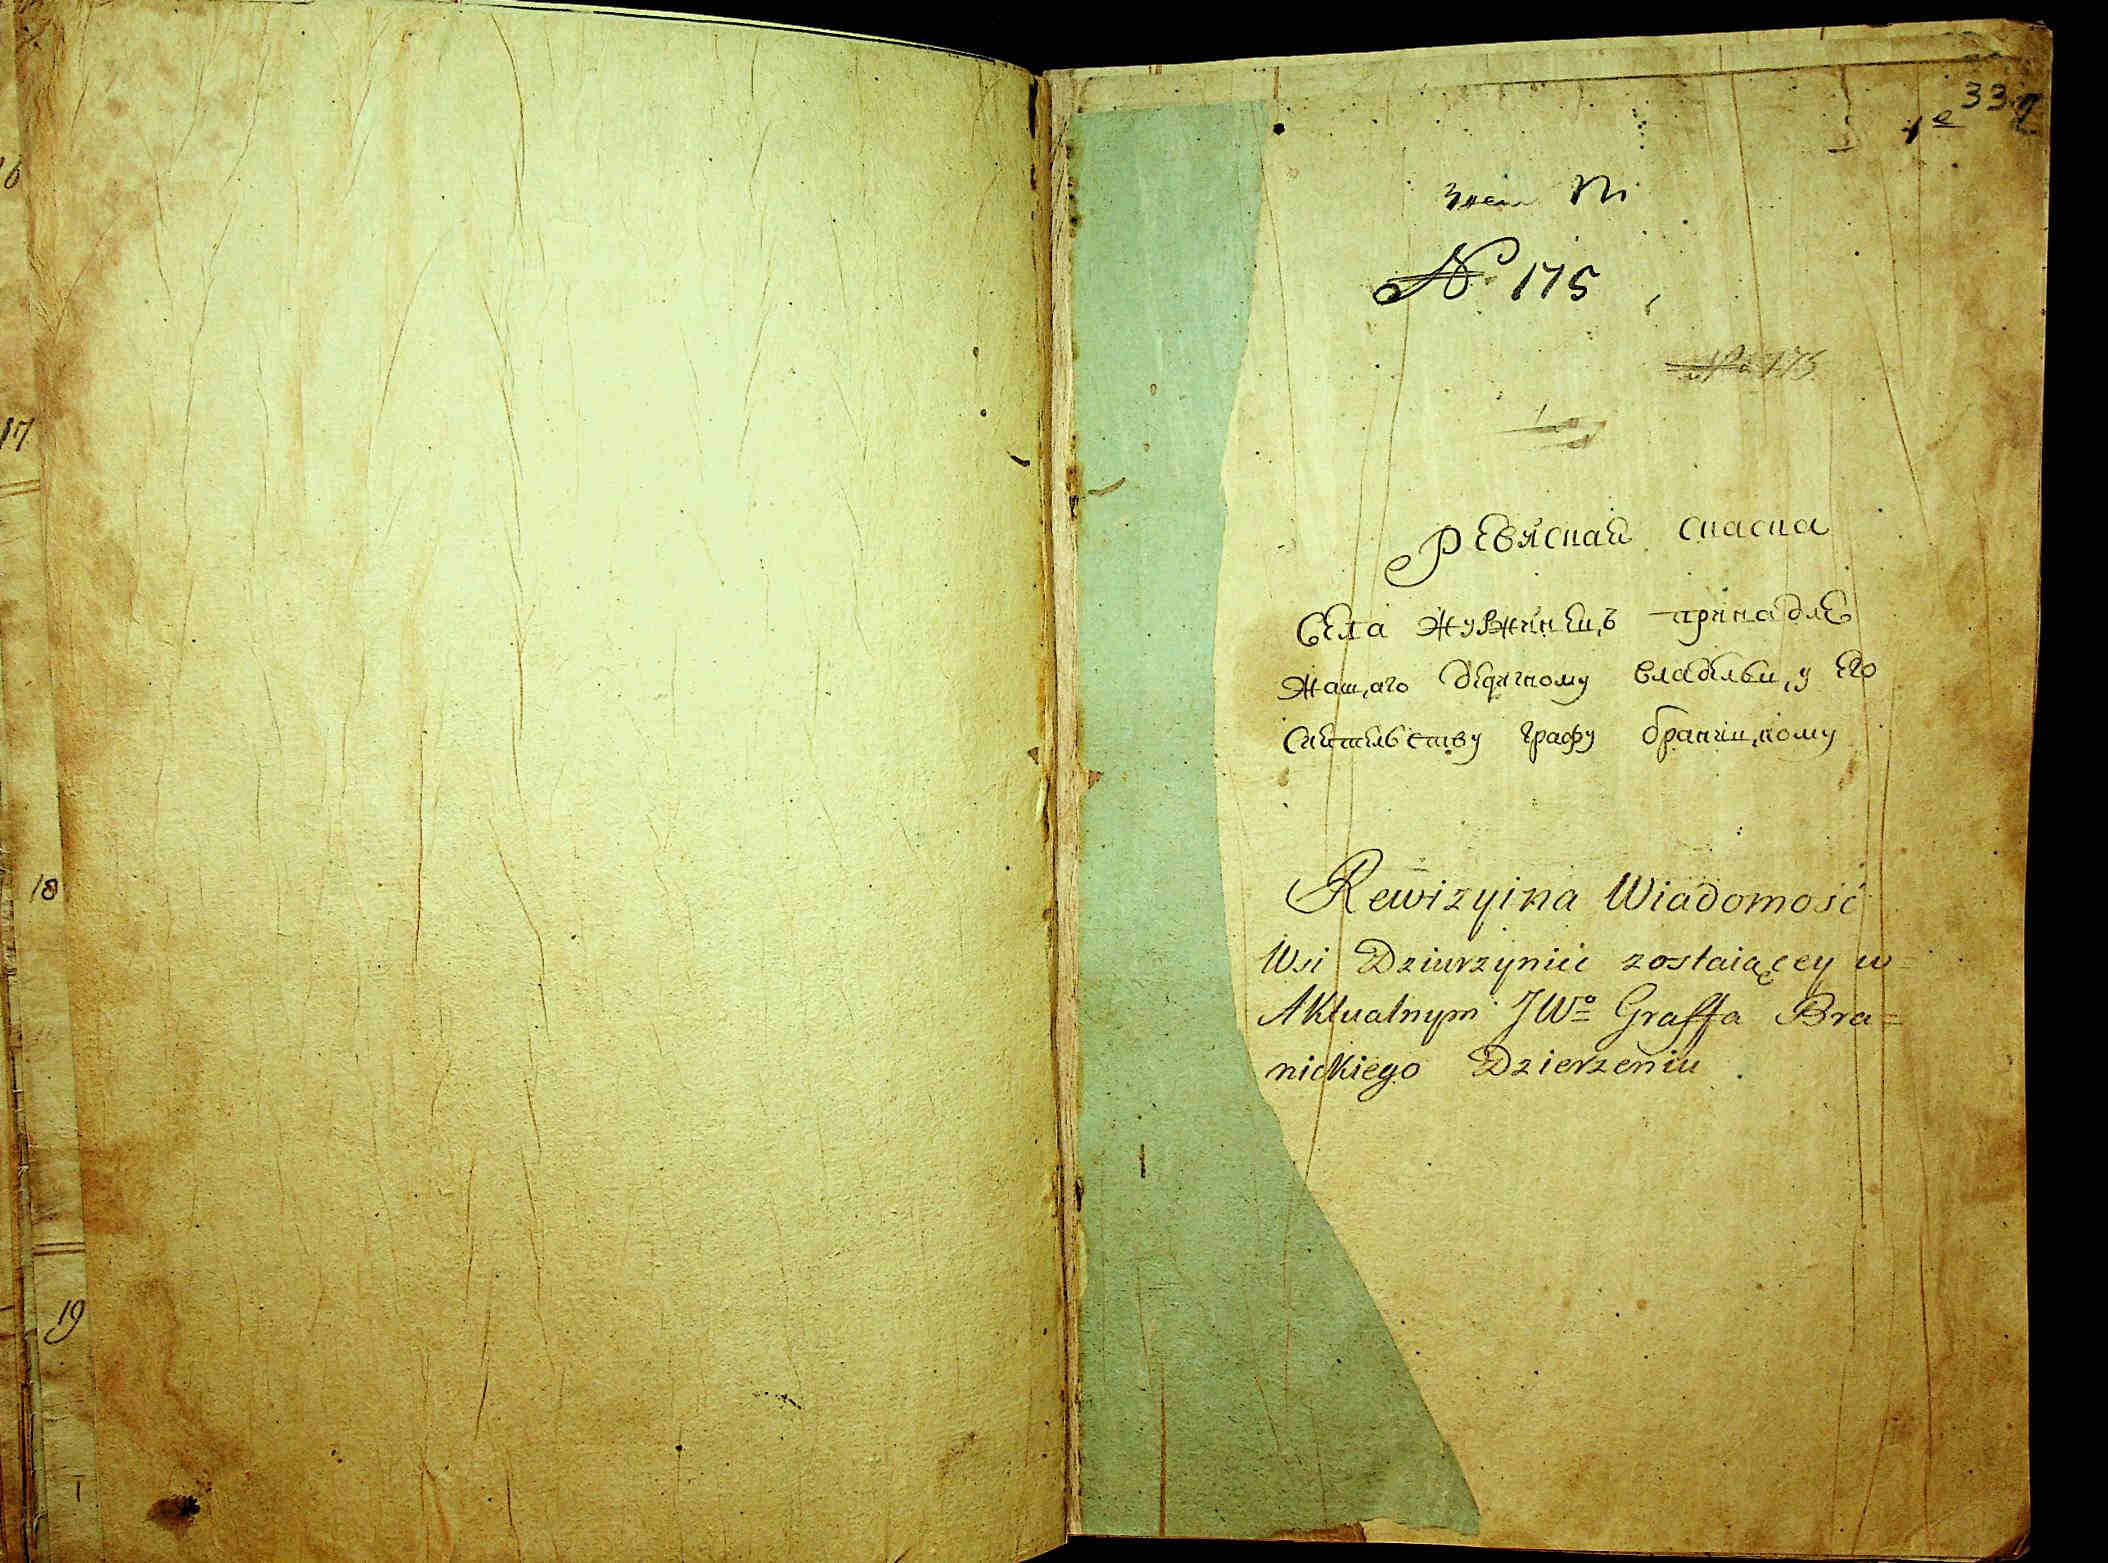 16
17
18
19
337
1е
№ 175
№ 175
Ревизская сказка
Села Журжинецъ принадле
жащаго дедичному владельцу его
Сиятельству графу браницкому
Rewizyina Wiadomość
Wsi Dziurzyniec zostaiącey w=
Aktualnym JWo Graffa Bra=
nickiego Dzierzeniu.